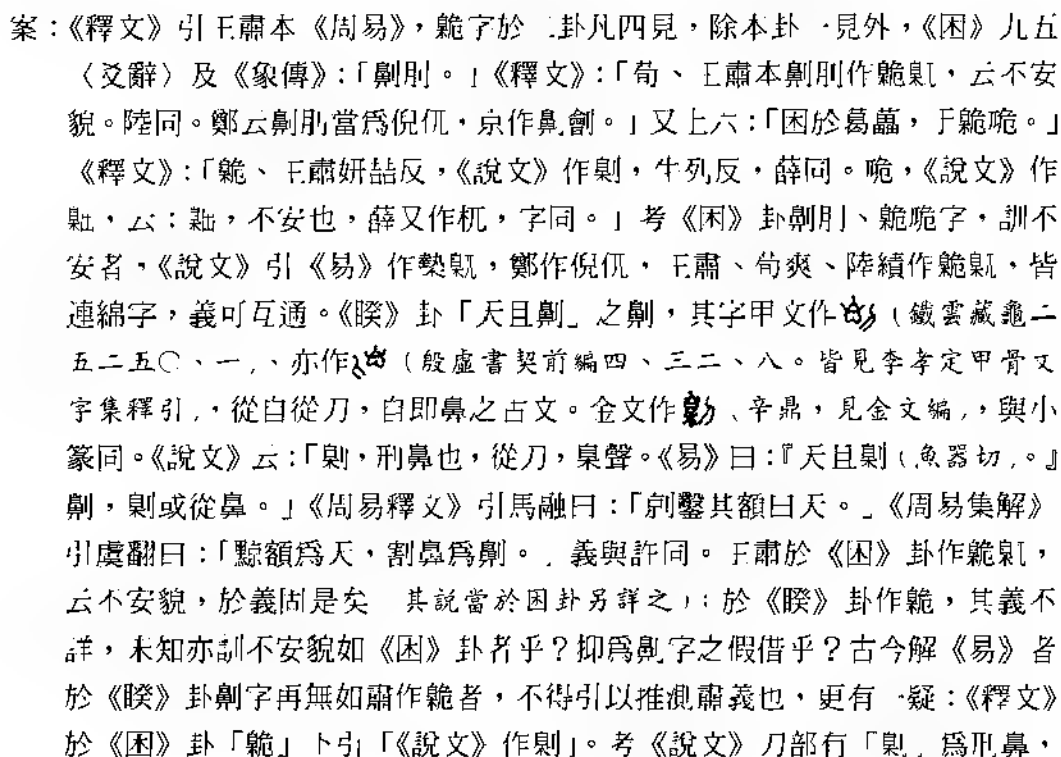 案：《釋文》引王肅本《周易》，臲字於二卦凡四見，除本卦一見外，《困》九五
〈爻辭〉及《象傳》：「劓刖。」《釋文》：「荀、王肅本劓刖作臲𡰈，云不安
貌。陸同。鄭云劓刖當爲倪㐳，京作劓劊。」又上六：「困於葛藟，于臲卼。」
《釋文》：「臲、王肅妍喆反，《說文》作劓，牛列反，薛同。卼，《說文》作
𡰈，云：𡰈，不安也，薛又作杌，字同。」考《困》卦劓刖、臲卼字，訓不
安者，《說文》引《易》作槷𡰈，鄭作倪㐳，王肅、荀爽、陸績作臲𡰈，皆
連綿字，義可互通。《睽》卦「天且劓」之劓，其字甲文作（鐵雲藏龜二
五二五〇、一）、亦作（殷虛書契前編四、三二、八。皆見李孝定甲骨文
字集釋引），從自從刀，自即鼻之古文。金文作（辛鼎，見金文編），與小
篆同。《說文》云：「劓，刑鼻也，從刀，臬聲。《易》曰：『天且劓（魚器切）。』
劓，劓或從鼻。」《周易釋文》引馬融曰：「剠鑿其額曰天。」《周易集解》
引虞翻曰：「黥額爲天，割鼻爲劓。」義與許同。王肅於《困》卦作臲𡰈，
云不安貌，於義固是矣（其說當於困卦另詳之）；於《睽》卦作臲，其義不
詳，未知亦訓不安貌如《困》卦者乎？抑爲劓字之假借乎？古今解《易》者
於《睽》卦劓字再無如肅作臲者，不得引以推測肅義也，更有一疑：《釋文》
於《困》卦「臲」下引「《說文》作劓」。考《說文》刀部有「劓」爲刑鼻，